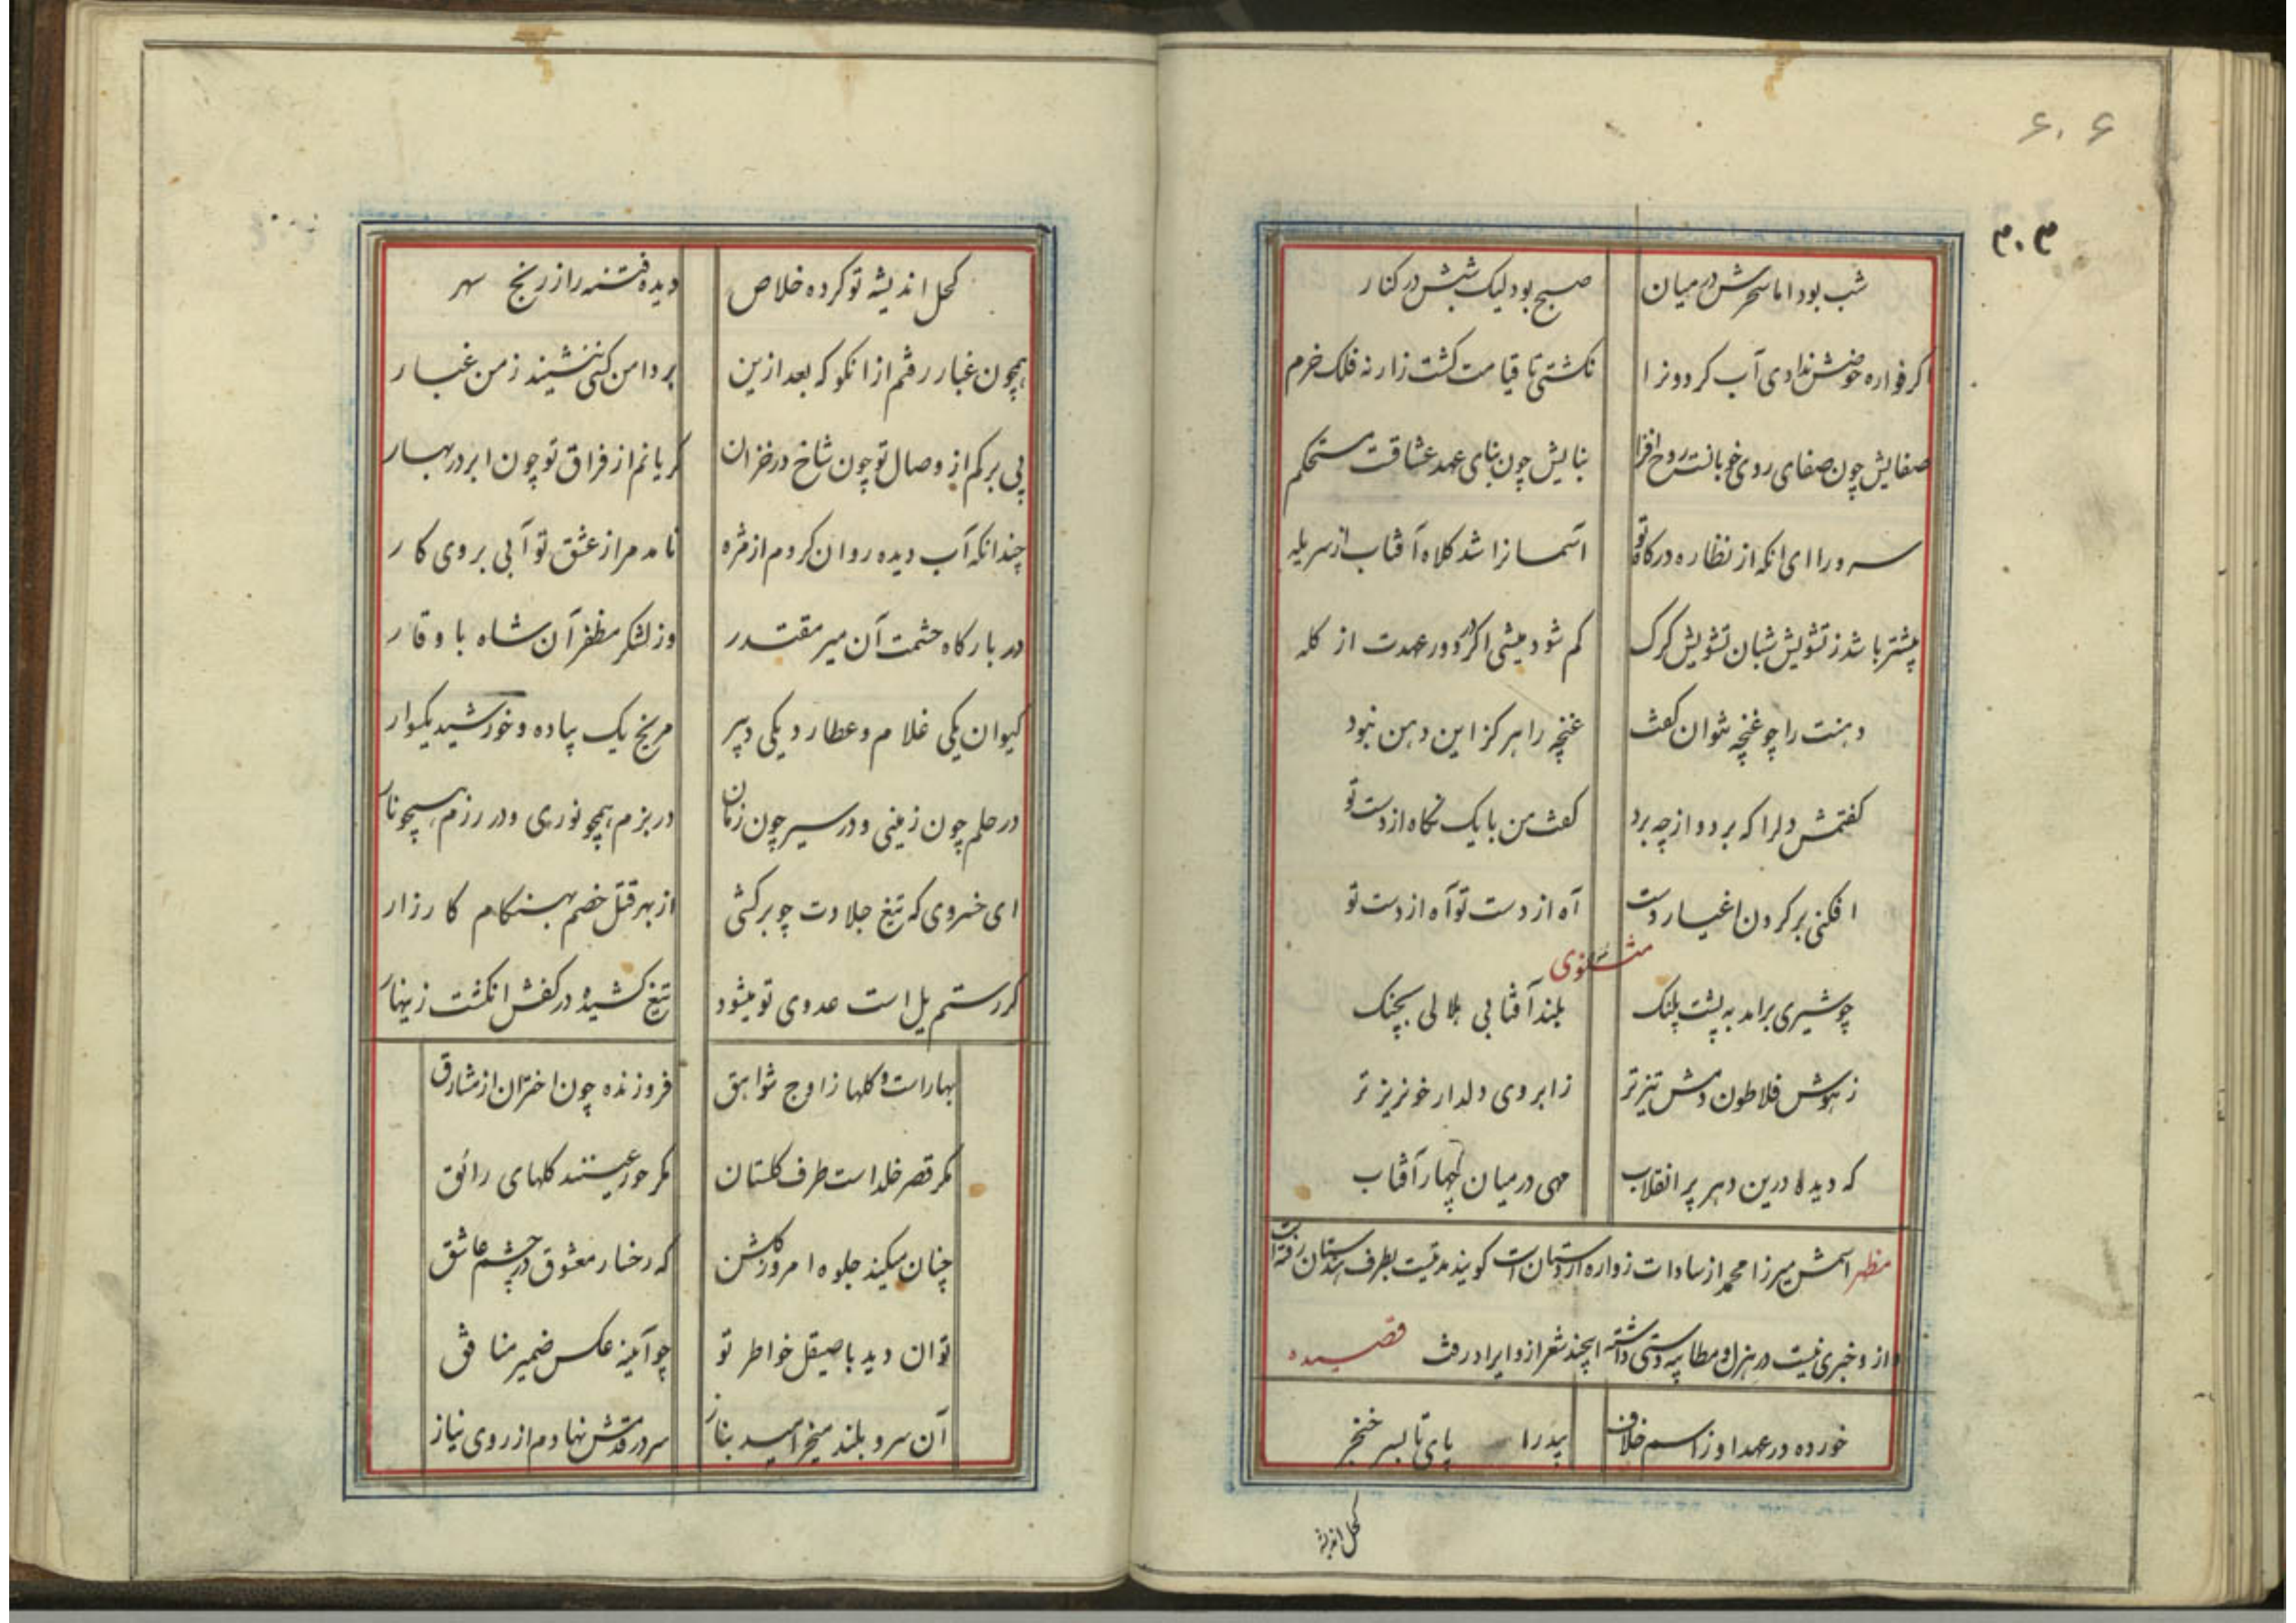 ۶۰۶
۳۰۳
شب بود اما سحرش در میان صبح بود لیک شبش در کنار
کر فواره حوضش ندادی آب کردونرا نکشتی تا قیامت کشت زار نه فلک خرم
صفایش چون صفای روی خوبانت روح افزا بنایش چون بنای عهد عشاقت مستحکم
سرورا ای انکه از نظاره درکاه تو آسمانرا شد کلاه آفتاب از سر یله
پیشتر باشد ز تشویش شبان تشویش کرک کم شود میشی اکر در دور عهدت از کله
دهنت را چو غنچه نتوان کفت غنچه را هرکز این دهن نبود
کفتمش دلرا که برد و از چه برد کفت من با یک نکاه از دست تو
افکنی بر کردن اغیار دست آه از دست تو آه از دست تو
مثنوی
چو شیری برامد به پشت پلنک بلند آفتابی هلالی بچنک
ز هوش فلاطون دمش تیزتر ز ابروی دلدار خونریز تر
که دیده درین دهر پر انقلاب مهی در میان چهار آفتاب
مظهر اسمش میرزا محمد از سادات زواره اردستان است کویند مدتیست بطرف هندستان رفته است
و از و خبری نیست در هزل و مطایبه دستی داشته اینچند شعر ازو ایراد رفت قصیده
خورده در عهد او ز اسم خلاف پدرا پای تا بسر خنجر
کحل اندیشه
کحل اندیشه تو کرده خلاص دیده فتنه را ز رنج سهر
همچون غبار رفتم از آنکو که بعد ازین بر دامن کسی ننشیند ز من غبار
بی برکم از وصال تو چون شاخ در خزان کریانم از فراق تو چون ابر در بهار
چندانکه آب دیده روان کردم از مژه نامد مرا ز عشق تو آبی بروی کار
در بارکاه حشمت آن میر مقتدر وز لشکر مظفر آن شاه با وقار
کیوان یکی غلام و عطارد یکی دبیر مریخ یک پیاده و خورشید یکسوار
در حلم چون زمینی و در سیر چون زمان در بزم همچو نوری و در رزم همچو نار
ای خسروی که تیغ جلادت چو برکشی از بهر قتل خصم بهنکام کارزار
کر رستم یل است عدوی تو میشود تیغ کشیده در کفش انکشت زینهار
بهار است و کلها ز اوج شواهق فروزنده چون اختران از مشارق
مکر قصر خلد است طرف کلستان مکر حور عینند کلهای رائق
چنان میکند جلوه امروز کلشن که رخسار معشوق در چشم عاشق
توان دید با صیقل خواطر تو چو آئینه عکس ضمیر منافق
آن سرو بلند میخرامید بناز سر در قدمش نهادم از روی نیاز